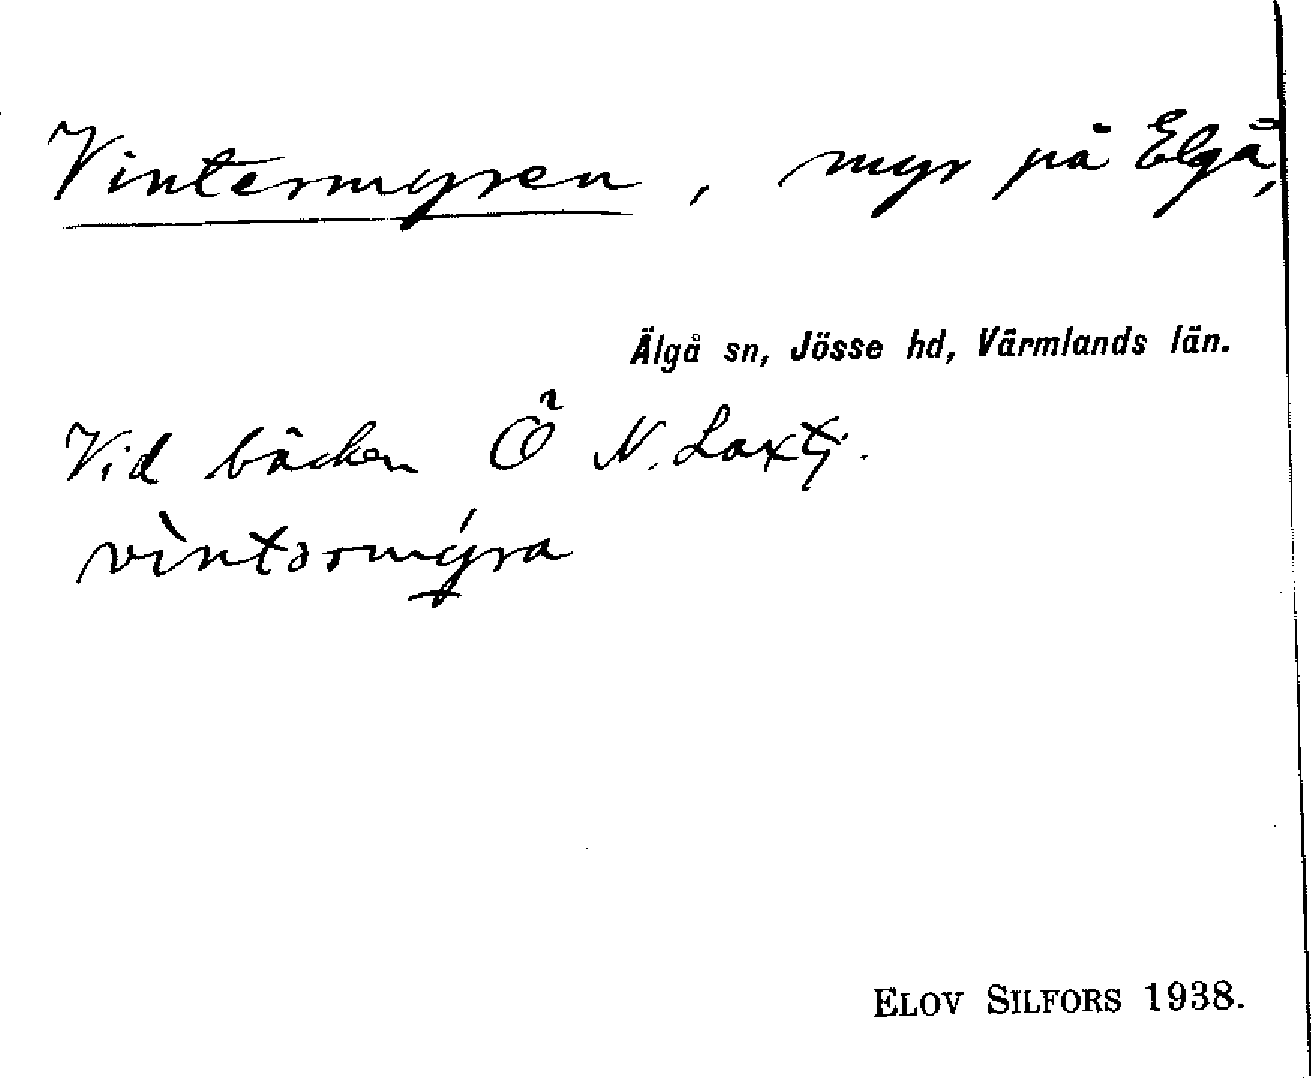 Vintermyren, myr på Elgå,
Älgå sn, Jösse hd, Värmlands län.
Vid bäcken Ö N. Laxtj.
vìntərmýra
ELOV SILFORS 1938.